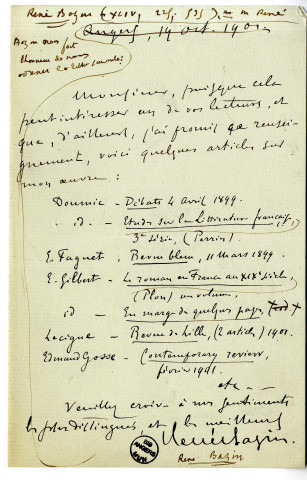 René Bazin (XLIV, 225, 535),
Angers, 19 oct. 1901.
Monsieur, puisque cela
peut intéresser un de vos lecteurs, et
que, d'ailleurs, j'ai promis ce rensei-
gnement, voici quelques articles sur
mon œuvre :
Doumic - Débats 4 avril 1899.
id - Etudes sur la littérature française,
3e série, (Perrin).
E. Faguet, Revue bleue, 11 Mars 1899.
E. Gilbert - Le roman en France au XIXe siècle,
(Plon) un volume,
id - En marge de quelques pages,
Lecigne - Revue de Lille, (2 articles) 1901.
Edmund Gosse - Contemporary review,
février 1901.
etc - -
Veuillez croire à mes sentiments
les plus distingués, et les meilleurs
René Bazin
René Bazin